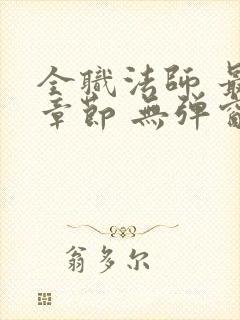 全職法師 最
章節 無弹窗
翁多尔